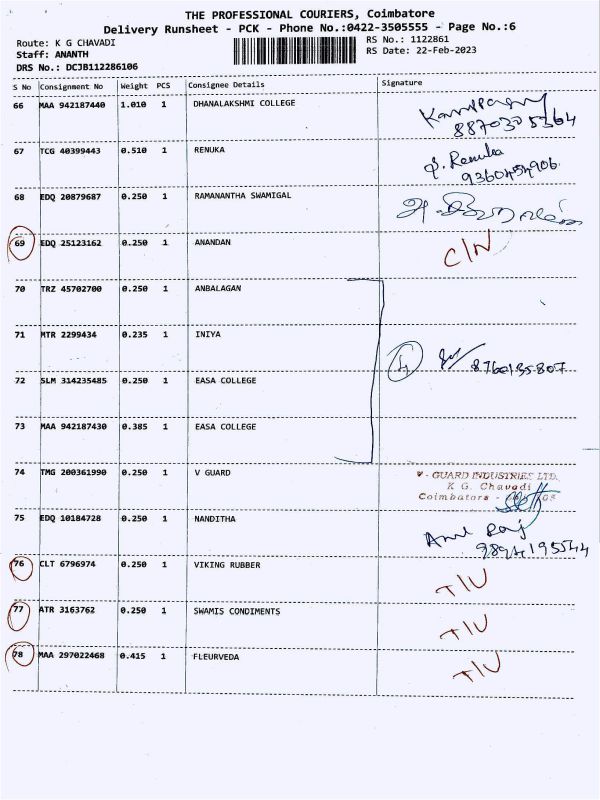 THE PROFESSIONAL COURIERS, Coimbatore
Delivery Runsheet - PCK - Phone No.:0422-3505555 - Page No.:6
Route: K G CHAVADI
RS No.: 1122861
Staff: ANANTH
RS Date: 22-Feb-2023
DRS No.: DCJB112286106
S No Consignment No Weight PCS Consignee Details Signature
66 MAA 942187440 1.010 1 DHANALAKSHMI COLLEGE
8870375364
67 TCG 40399443 0.510 1 RENUKA Renuka
9360454906
68 EDQ 20879687 0.250 1 RAMANANTHA SWAMIGAL
69 EDQ 25123162 0.250 1 ANANDAN C/N
70 TRZ 45702700 0.250 1 ANBALAGAN
71 MTR 2299434 0.235 1 INIYA
4 8760135807
72 SLM 314235485 0.250 1 EASA COLLEGE
73 MAA 942187430 0.385 1 EASA COLLEGE
74 TMG 200361990 0.250 1 V GUARD V - GUARD INDUSTRIES LTD.
K G. Chavadi
Coimbators -
75 EDQ 10184728 0.250 1 NANDITHA Raj
9894195544
76 CLT 6796974 0.250 1 VIKING RUBBER T/U
77 ATR 3163762 0.250 1 SWAMIS CONDIMENTS T/U
78 MAA 297022468 0.415 1 FLEURVEDA T/U